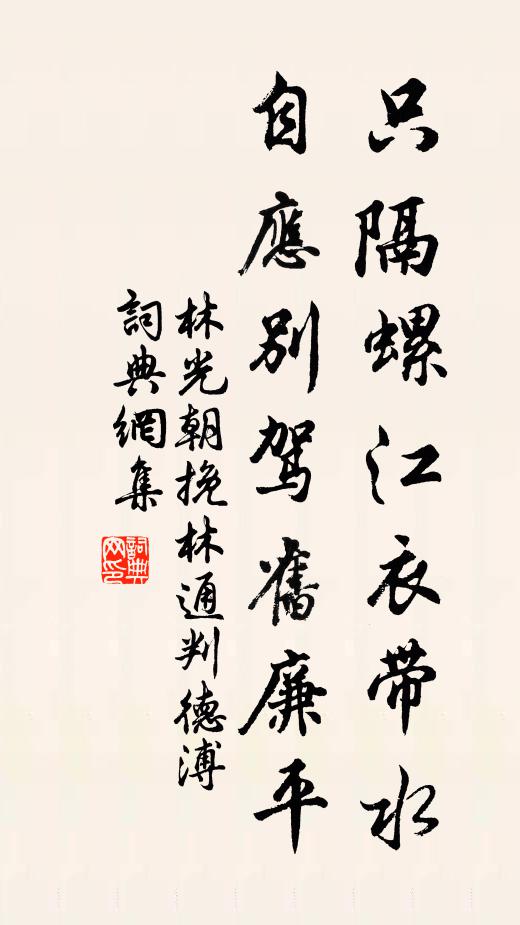 只隔螺江衣帶水
自應別駕舊廉平
林光朝挽林通判德溥
詞典網集
詞典網印